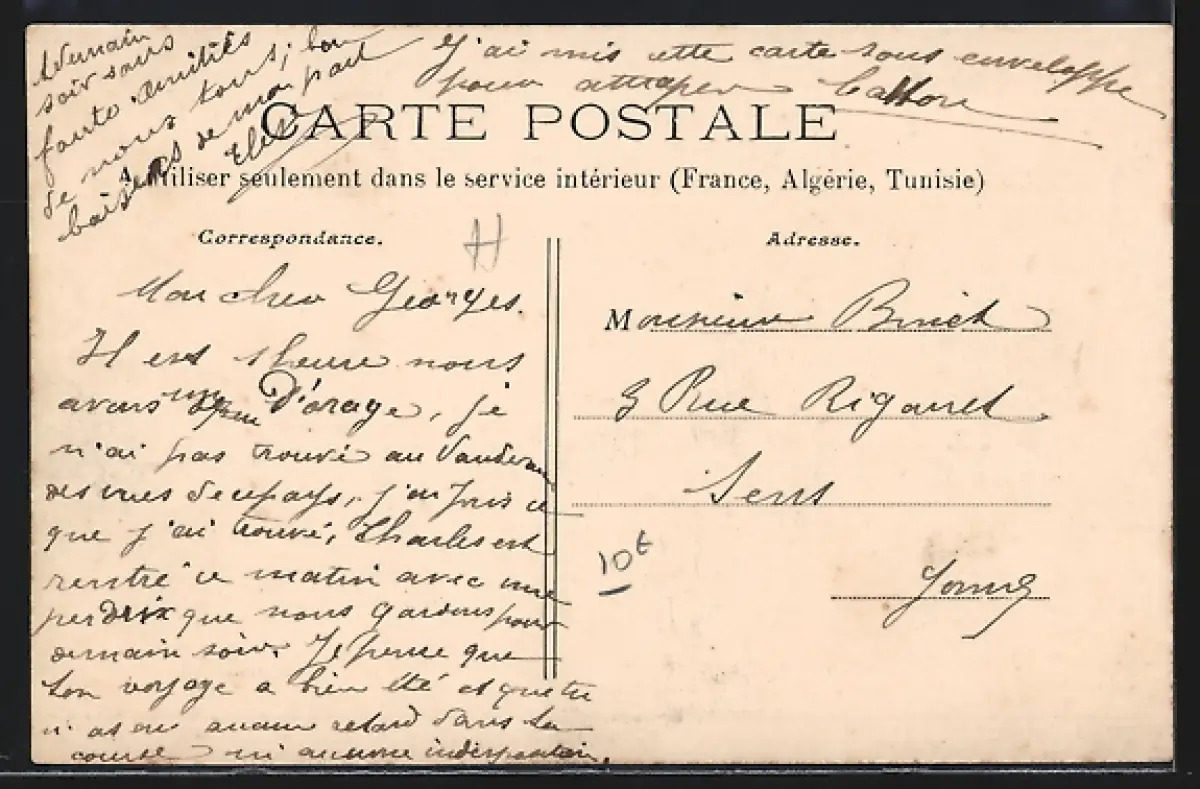 demain
soir sans
faute amitiés
de nous tous, bon
baisers de ma part
J'ai mis cette carte sous enveloppe
pour attraper
CARTE POSTALE
A utiliser seulement dans le service intérieur (France, Algérie, Tunisie)
Correspondance.
H
Mon cher Georges.
Il est 1 heure nous
avons un peu d'orage, je
n'ai pas trouvé au
des vues de ce pays, j'ai pris ce
que j'ai trouvé, Charles est
rentré ce matin avec une
perdrix que nous gardons pour
demain soir. Je pense que
ton voyage a bien été et que tu
n'as eu aucun retard dans ta
course ni aucune indisposition.
Adresse.
Monsieur
3 Rue
Sens
Yonne
10€